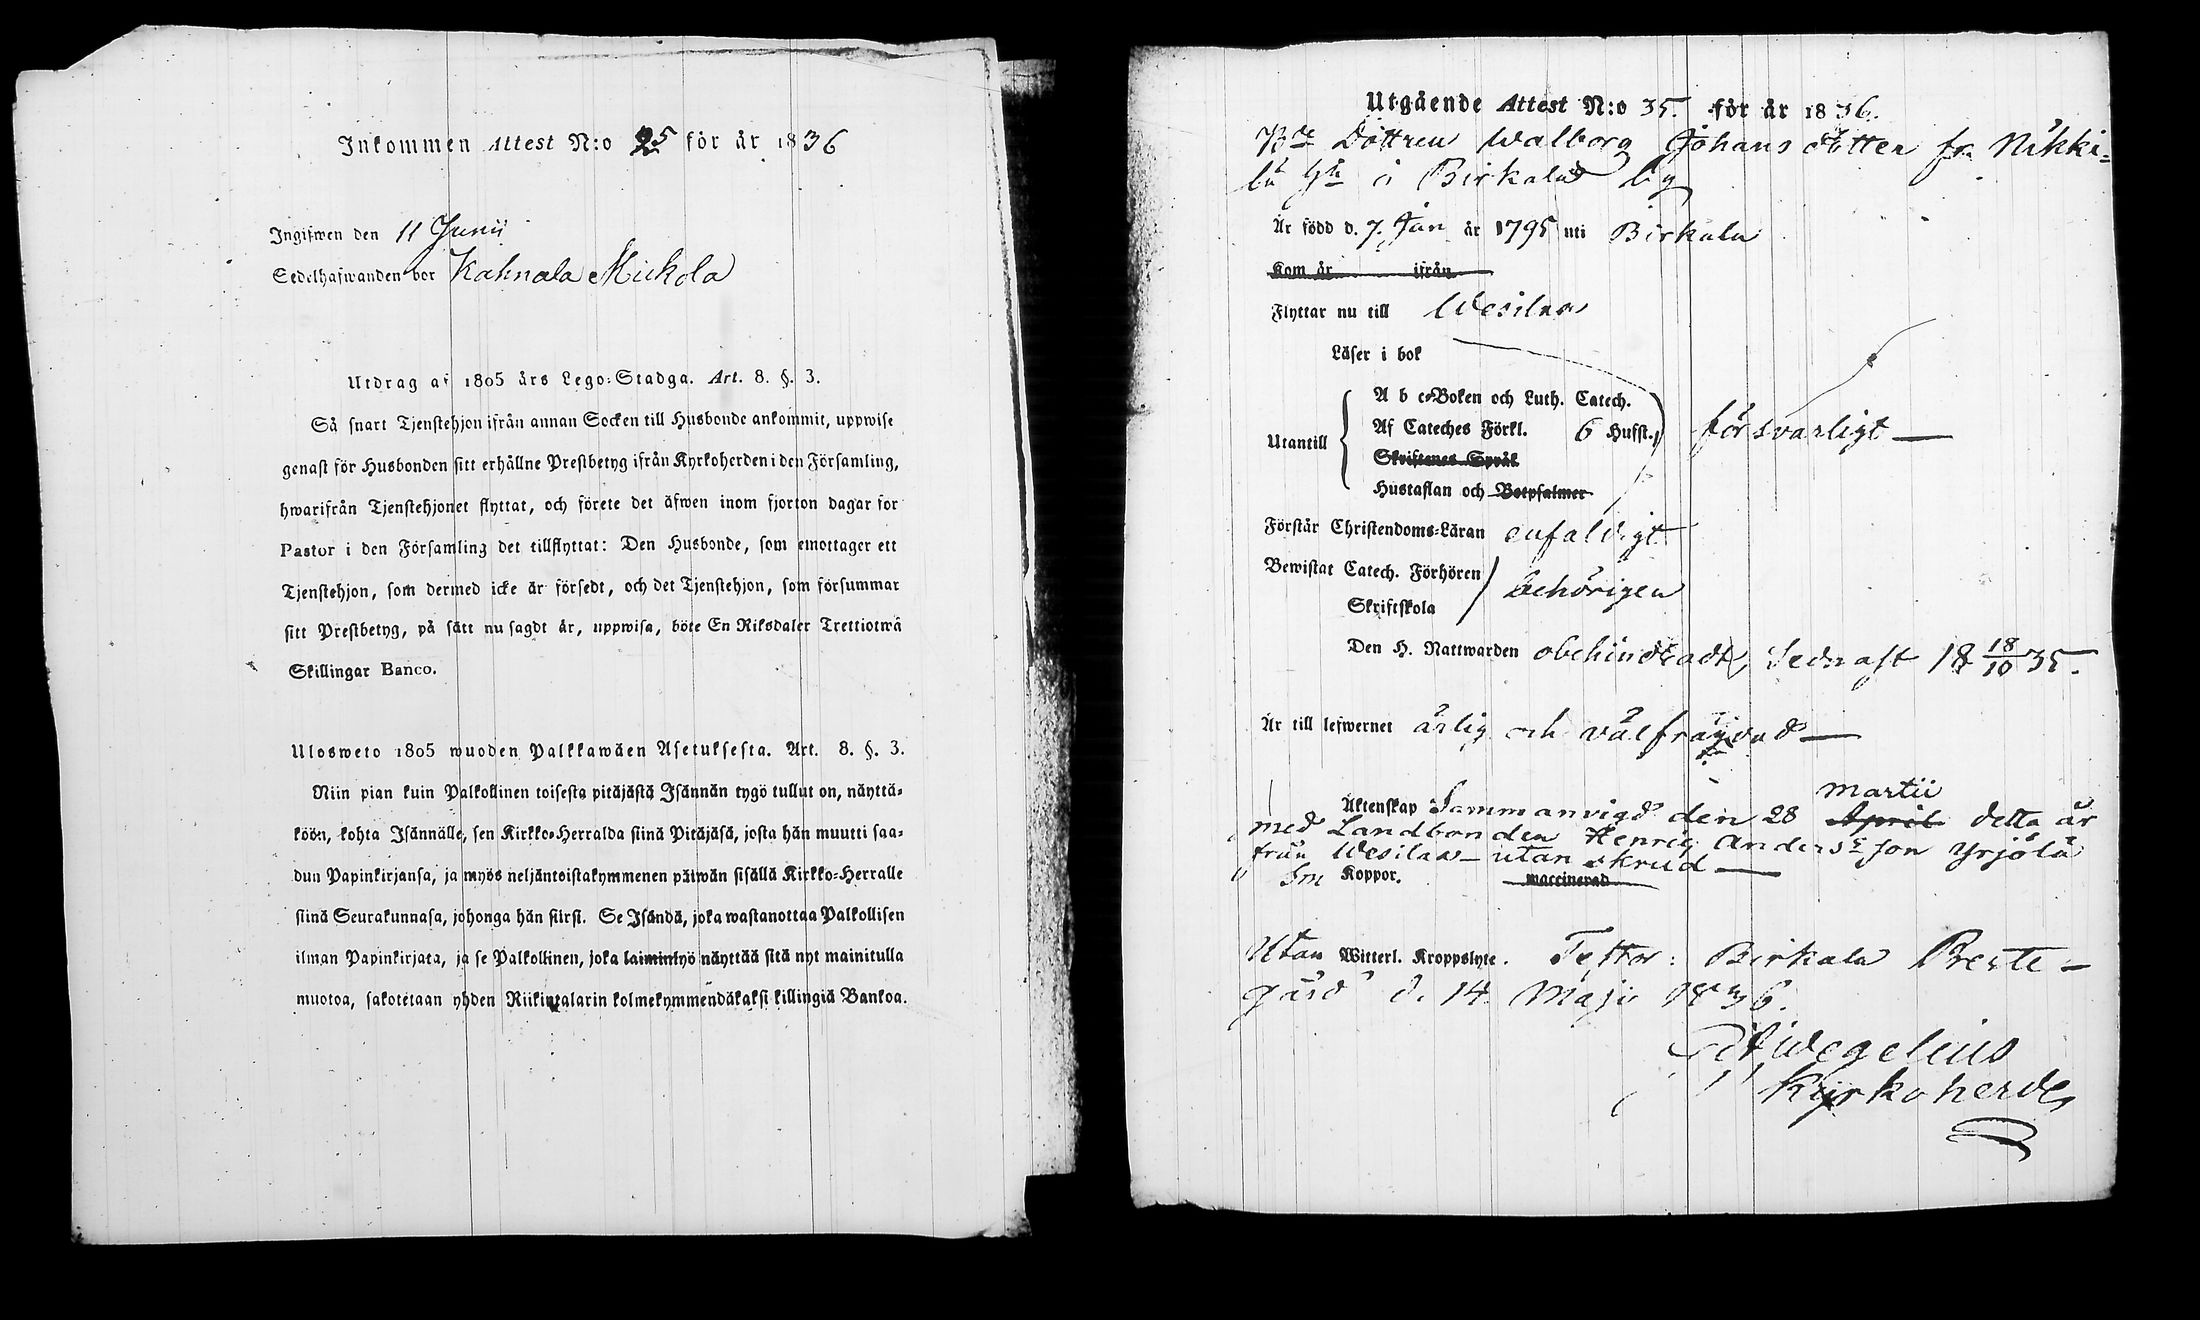 Inkommen Attest N:o 25 för år 1836
Ingifwen den 11 Junii
Sedelhafwanden bor Kahnala Mickola
Utdrag af 1805 års Lego-Stadga. Art. 8. §. 3.
Så snart Tjenstehjon ifrån annan Socken till Husbonde ankommit, uppwise
genast för Husbonden sitt erhållne Prestbetyg ifrån Kyrkoherden i den Församling,
hwarifrån Tjenstehjonet flyttat, och förete det äfwen inom fjorton dagar for
Pastor i den Församling det tillflyttat: Den Husbonde, som emottager ett
Tjenstehjon, som dermed icke är försedt, och det Tjenstehjon, som försummar
sitt Prestbetyg, på sätt nu sagdt är, uppwisa, böte En Riksdaler Trettiotwå
Skillingar Banco.
Ulosweto 1805 wuoden Palkkawäen Asetuksesta. Art. 8. §. 3.
Niin pian kuin Palkollinen toisesta pitäjästä Isännän tygö tullut on, näyttä-
köön, kohta Isännälle, sen Kirkko-Herralda siinä Pitäjäsä, josta hän muutti saa-
dun Papinkirjansa, ja myös neljäntoistakymmenen päiwän sisällä Kirkko-Herralle
siinä Seurakunnasa, johonga hän siirsi. Se Isändä, joka wastanottaa Palkollisen
ilman Papinkirjata, ja se Palkollinen, joka laiminlyö näyttää sitä nyt mainitulla
muotoa, sakotetaan yhden Riikintalarin kolmekymmendäkaksi killingiä Bankoa.
Utgående Attest N:o 35. för år 1836.
Bde Dottren Walborg Johans dotter fr. Nikki-
lä hn i Birkala by
Är född d. 7. Jan år 1795 uti Birkala
Kom år ifrån
Flyttar nu till Wesilax
Läser i bok
A b c-Boken och Luth. Catech.
Utantill Af Cateches Förkl. 6 Hufst., försvarligt
Skriftenes Språk
Hustaflan och Botpsalmer
Förstår Christendoms-Läran enfaldigt
Bewistat Catech. Förhören behörigen
Skriftskola
Den H. Nattwarden obehindradt, Sednast 18 18/10 35.
Är till lefwernet ärlig och välfräjdad
Äktenskap Sammanvigd den 28 April Martii detta år
med Landbonden Henric Andersson Yrjölä
från Wesilax utan skrud
Koppor. waccinerad
Utan Witterl. Kroppslyte. Testor: Birkala Preste-
gård d. 14. Maji 1836.
Wegelius
Kyrkoherde